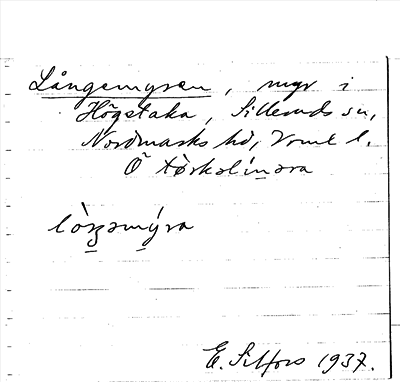 Långemyren, myr i
Högstaka, Silleruds sn,
Nordmarks hd, Vrml l.
Ö tørkəlínəra
lòŋəmýra
E. Silfors 1937.